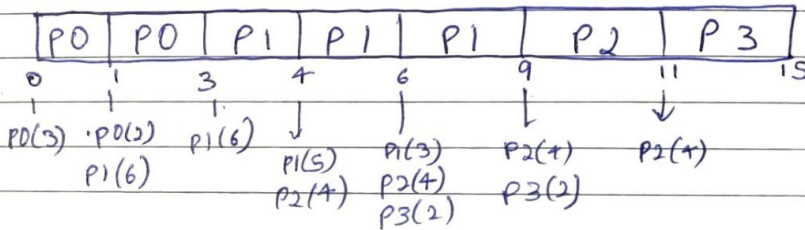 P0 P0 P1 P1 P1 P2 P3
0 1 3 4 6 9 11 15
P0(3) P0(2) P1(6) P1(5) P1(3) P2(4) P2(4)
P1(6) P2(4) P2(4) P3(2)
P3(2)